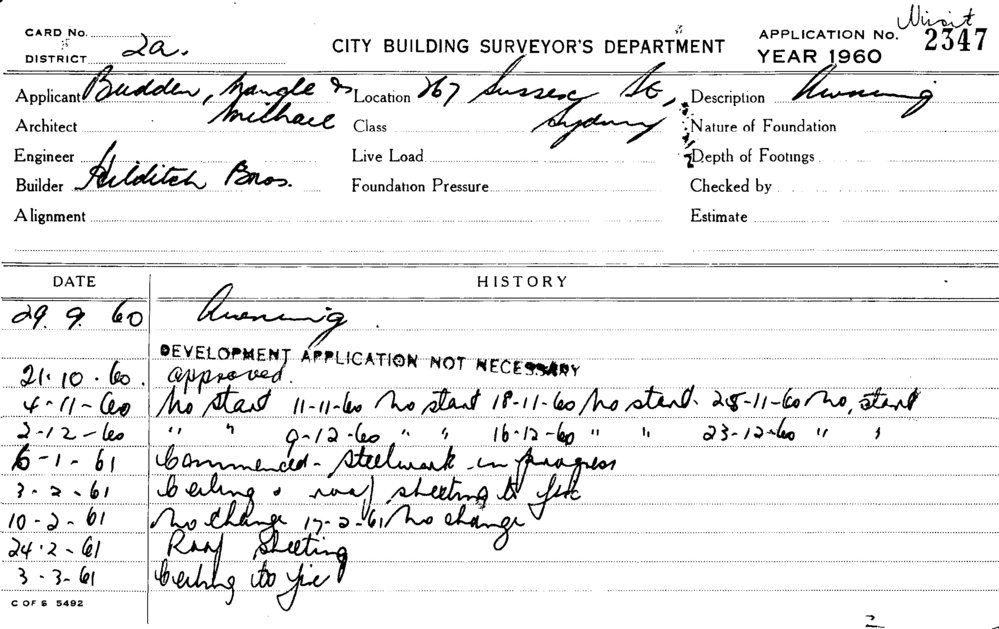 Minit
CARD No. CITY BUILDING SURVEYOR'S DEPARTMENT APPLICATION No. 2347
DISTRICT 2a. YEAR 1960
Applicant Budden, Nangle & Michael Location 267 Sussex St, Sydney Description Awning
Architect Class Nature of Foundation
Engineer Live Load Depth of Footings
Builder Hilditch Bros. Foundation Pressure Checked by
Alignment Estimate
DATE HISTORY
29. 9. 60 Awning
DEVELOPMENT APPLICATION NOT NECESSARY
21. 10. 60. approved.
4-11-60 No start 11-11-60 No start 18-11-60 No start. 25-11-60 No start
2-12-60 " " 9-12-60 " " 16-12-60 " " 23-12-60 " "
6-1-61 Commenced - steelwork in progress
3-2-61 Ceiling & roof sheeting to fix
10-2-61 No change 17-2-61 No change
24-2-61 Roof Sheeting
3-3-61 Ceiling to fix
C OF S 5492